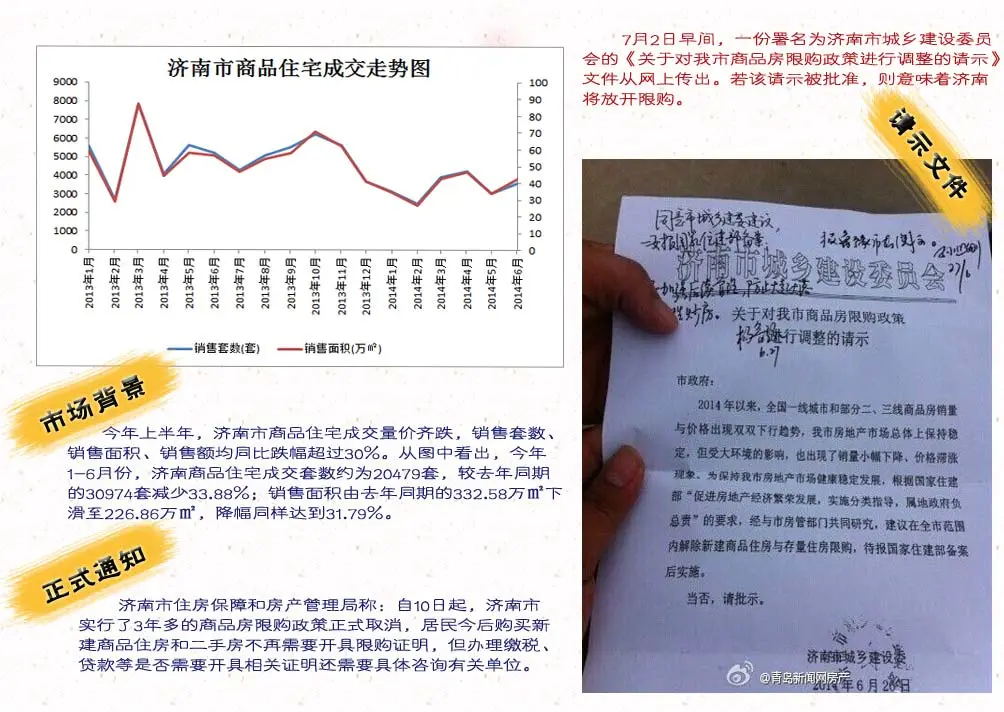 济南市商品住宅成交走势图
9000
8000
7000
6000
5000
4000
3000
2000
1000
0
100
90
80
70
60
50
40
30
20
10
0
2013年1月
2013年2月
2013年3月
2013年4月
2013年5月
2013年6月
2013年7月
2013年8月
2013年9月
2013年10月
2013年11月
2013年12月
2014年1月
2014年2月
2014年3月
2014年4月
2014年5月
2014年6月
销售套数(套) 销售面积(万㎡)
市场背景
今年上半年，济南市商品住宅成交量价齐跌，销售套数、
销售面积、销售额均同比跌幅超过30%。从图中看出，今年
1-6月份，济南商品住宅成交套数约为20479套，较去年同期
的30974套减少33.88%；销售面积由去年同期的332.58万㎡下
滑至226.86万㎡，降幅同样达到31.79%。
正式通知
济南市住房保障和房产管理局称：自10日起，济南市
实行了3年多的商品房限购政策正式取消，居民今后购买新
建商品住房和二手房不再需要开具限购证明，但办理缴税、
贷款等是否需要开具相关证明还需要具体咨询有关单位。
7月2日早间，一份署名为济南市城乡建设委员
会的《关于对我市商品房限购政策进行调整的请示》
文件从网上传出。若该请示被批准，则意味着济南
将放开限购。
请示文件
同意市城乡建委建议，
济南市城乡建设委员会
关于对我市商品房限购政策
进行调整的请示
6.27
市政府：
2014年以来，全国一线城市和部分二、三线商品房销量
与价格出现双双下行趋势，我市房地产市场总体上保持稳
定，但受大环境的影响，也出现了销量小幅下降、价格滞涨
现象。为保持我市房地产市场健康稳定发展，根据国家住建
部“促进房地产经济繁荣发展，实施分类指导，属地政府负
总责”的要求，经与市房管部门共同研究，建议在全市范围
内解除新建商品住房与存量住房限购，待报国家住建部备案
后实施。
当否，请批示。
济南市城乡建设委
2014年6月26日
@青岛新闻网房产